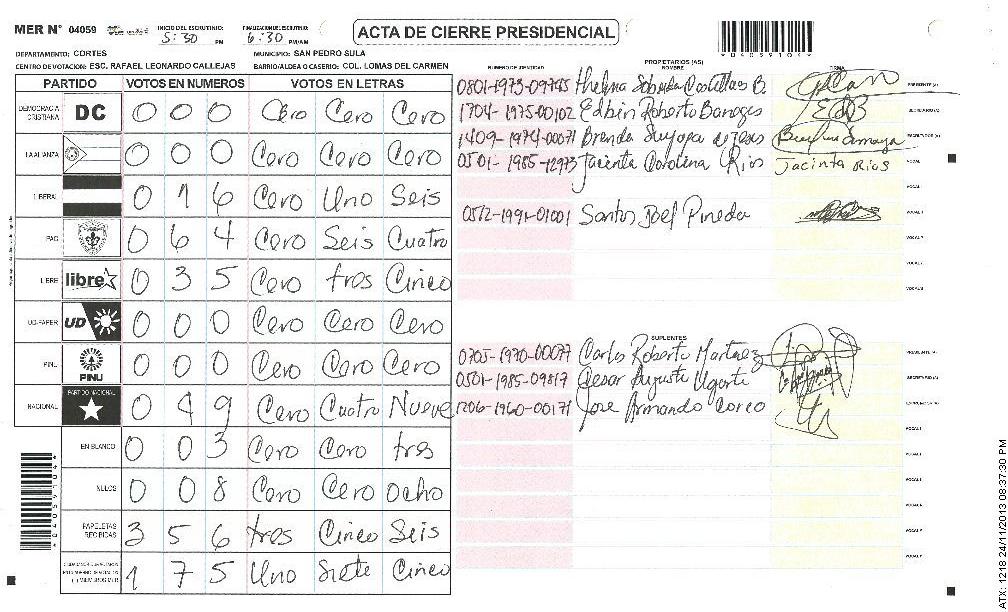 MER N° 04059 INICIO DEL ESCRUTINIO: 5:30 PM FINALIZACION DEL ESCRUTINIO: 6:30 PM/AM
ACTA DE CIERRE PRESIDENCIAL
*04059104*
DEPARTAMENTO: CORTES MUNICIPIO: SAN PEDRO SULA
CENTRO DE VOTACION: ESC. RAFAEL LEONARDO CALLEJAS BARRIO/ALDEA O CASERIO: COL. LOMAS DEL CARMEN
PARTIDO VOTOS EN NUMEROS VOTOS EN LETRAS
DEMOCRACIA CRISTIANA DC 0 0 0 Cero Cero Cero
LA ALIANZA 0 0 0 Cero Cero Cero
LIBERAL 0 1 6 Cero Uno Seis
PAC 0 6 4 Cero Seis Cuatro
LIBRE libre 0 3 5 Cero tres Cinco
UD-FAPER UD 0 0 0 Cero Cero Cero
PINU PINU 0 0 0 Cero Cero Cero
NACIONAL PARTIDO NACIONAL 0 4 9 Cero Cuatro Nueve
EN BLANCO 0 0 3 Cero Cero tres
NULOS 0 0 8 Cero Cero ocho
PAPELETAS RECIBIDAS 3 5 6 tres Cinco Seis
1 7 5 Uno Siete Cinco
NUMERO DE IDENTIDAD PROPIETARIOS (AS) NOMBRE FIRMA
0801-1973-09745 Thelma B. PRESIDENTE (A)
1704-1975-00102 Edbin Roberto Banegas EDB SECRETARIO (A)
1409-1974-00071 Brenda Suyapa ESCRUTADOR (A)
0501-1985-12973 Jacinta Carolina Rios Jacinta Rios VOCAL
VOCAL
0512-1991-01001 Santos Joel Pineda VOCAL
VOCAL
VOCAL
VOCAL
SUPLENTES
0703-1970-00077 Carlos Roberto Martinez PRESIDENTE (A)
0501-1985-09817 Cesar Augusto Ugarte SECRETARIO (A)
1206-1960-00171 Jose Armando Corea ESCRUTADOR (A)
VOCAL
VOCAL
VOCAL
VOCAL
VOCAL
VOCAL
ATX: 1218 24/11/2013 08:37:30 PM